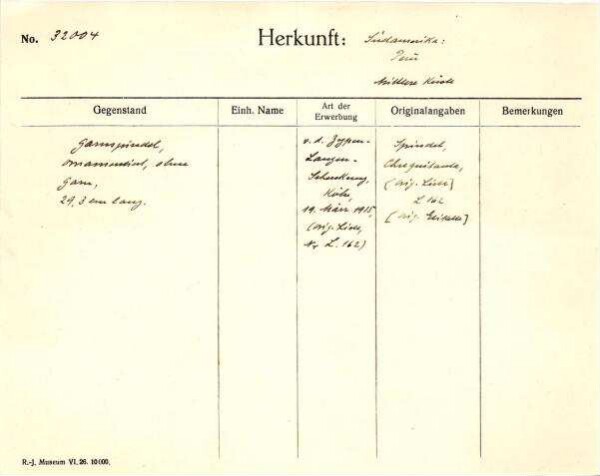 No. 32004
Herkunft: Südamerika:
Peru
Mittlere Küste
Gegenstand
Einh. Name
Art der Erwerbung
Originalangaben
Bemerkungen
Garnspindel,
ornamentiert, ohne
Garn,
29,3 cm lang.
v. d. Zypen-
Langen-
Schenkung,
Köln,
19. März 1915,
(orig. Liste,
Nr L. 162)
Spindel,
Chuquitanta,
(orig. Liste)
L 162
(orig. Etikette)
R.-J. Museum VI. 26. 10000.